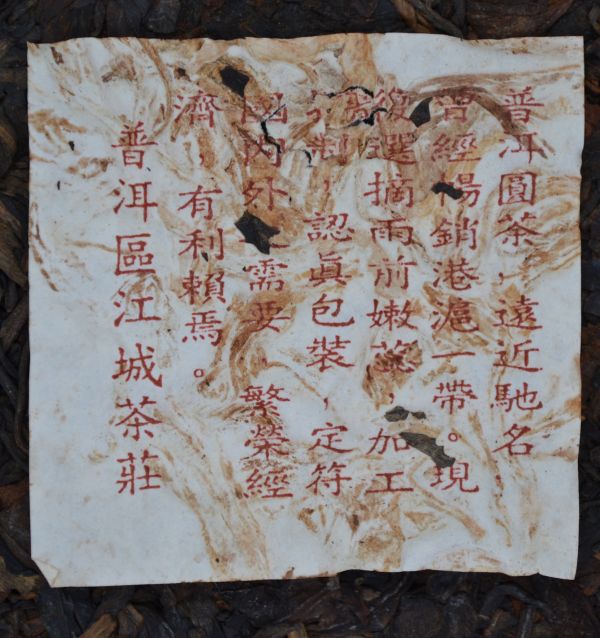 普洱圓茶，遠近馳名，
曾經暢銷港滬一帶。現
復選摘雨前嫩蕊，加工
制，認眞包裝，定符
國內外需要，繁榮經
濟，有利賴焉。
普洱區江城茶莊